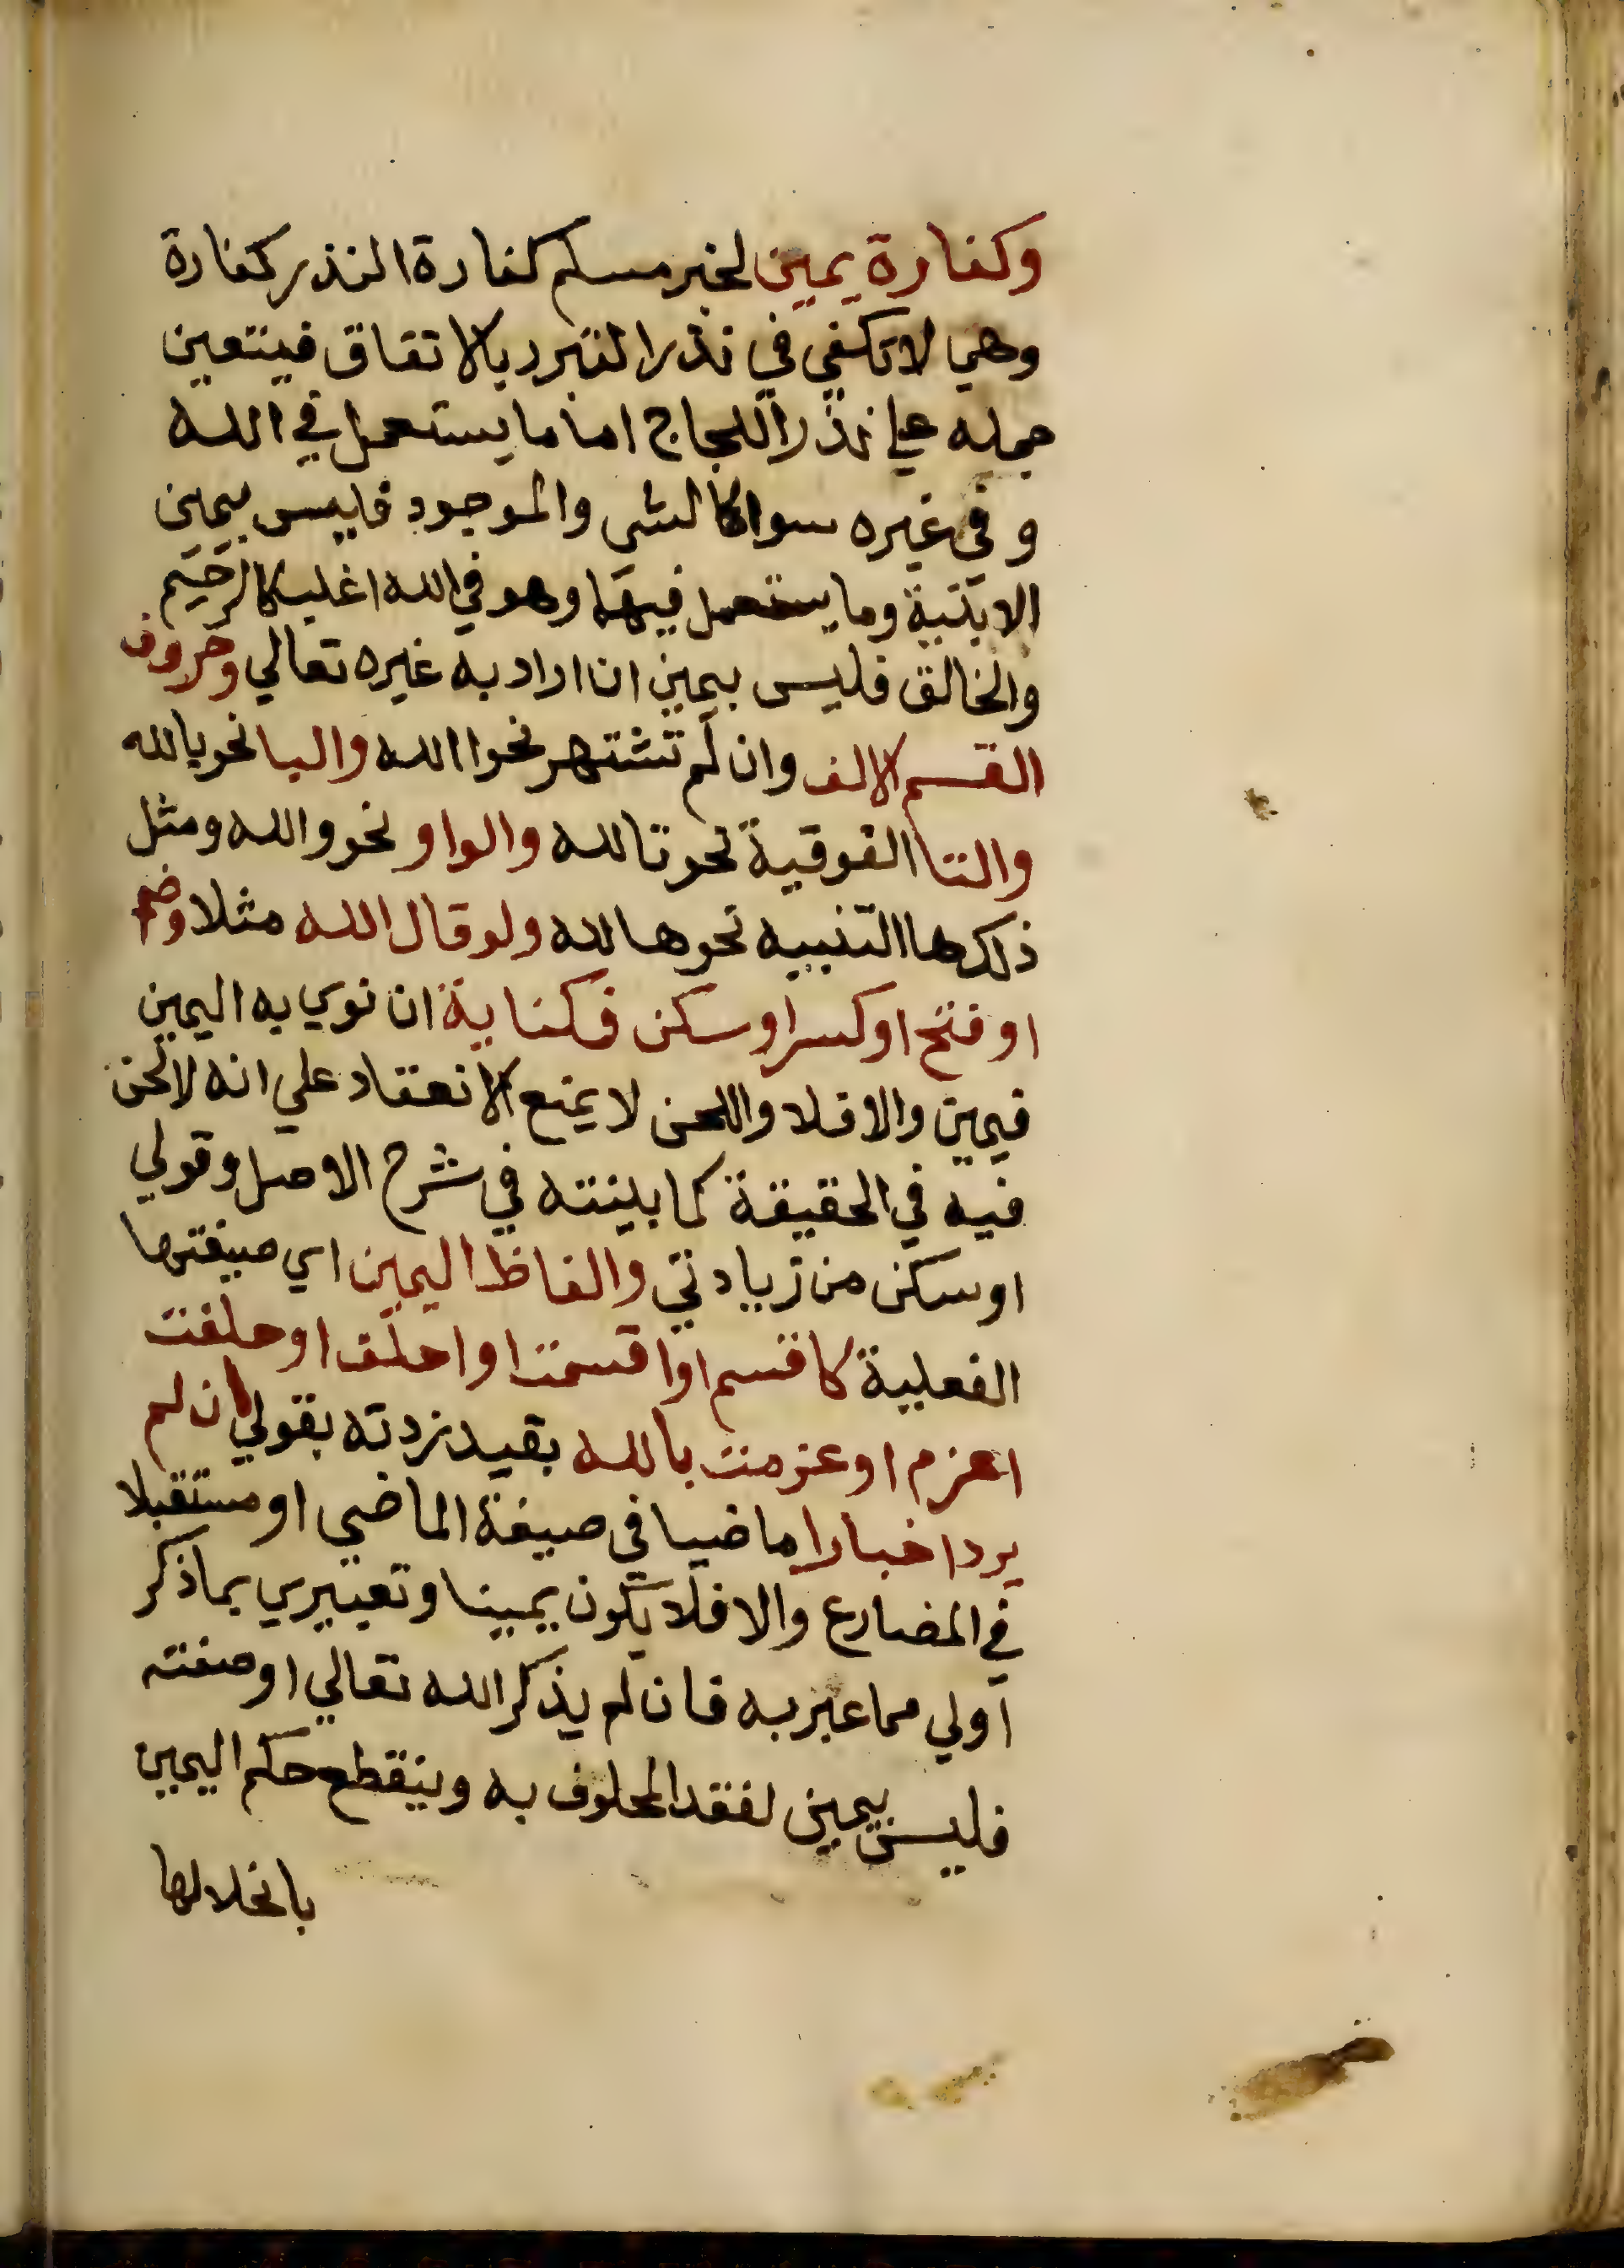 وكفارة يمين لخبر مسلم كفارة النذر كفارة
وهي لا تكفي في نذر التبرر بالاتفاق فيتعين
حمله علي نذر اللجاج اما ما يستعمل في الله
وفي غيره سوا كالشي والموجود فليس بيمين
الا بنية وما يستعمل فيهما وهو في الله اغلب كالرحيم
والخالق فليس بيمين ان اراد به غيره تعالي وحروف
القسم الالف وان لم تشتهر نحو االله والبا نحو بالله
والتا الفوقية نحو تالله والواو نحو والله ومثل
ذلك ها التنبيه نحو ها لله ولو قال الله مثلا وضم
او فتح او كسر او سكن فكناية ان نوي به اليمين
فيمين والا فلا واللحن لا يمنع الانعقاد علي انه لا لحن
فيه في الحقيقة كما بينته في شرح الاصل وقولي
او سكن من زيادتي والفاظ اليمين اي صيغتها
الفعلية كاقسم او اقسمت او احلف او حلفت
اعزم او عزمت بالله بقيد زدته بقولي ان لم
يرد اخبارا ماضيا في صيغة الماضي او مستقبلا
في المضارع والا فلا يكون يمينا وتعبيري بما ذكر
اولي مما عبر به فان لم يذكر الله تعالي او صفته
فليس بيمين لفقد المحلوف به وينقطع حكم اليمين
بانحلالها